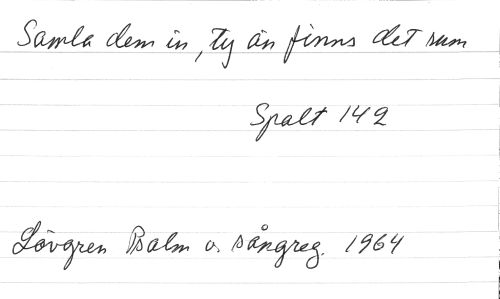 Samla dem in, ty än finns det rum
Spalt 142
Lövgren Psalm o. sångreg. 1964